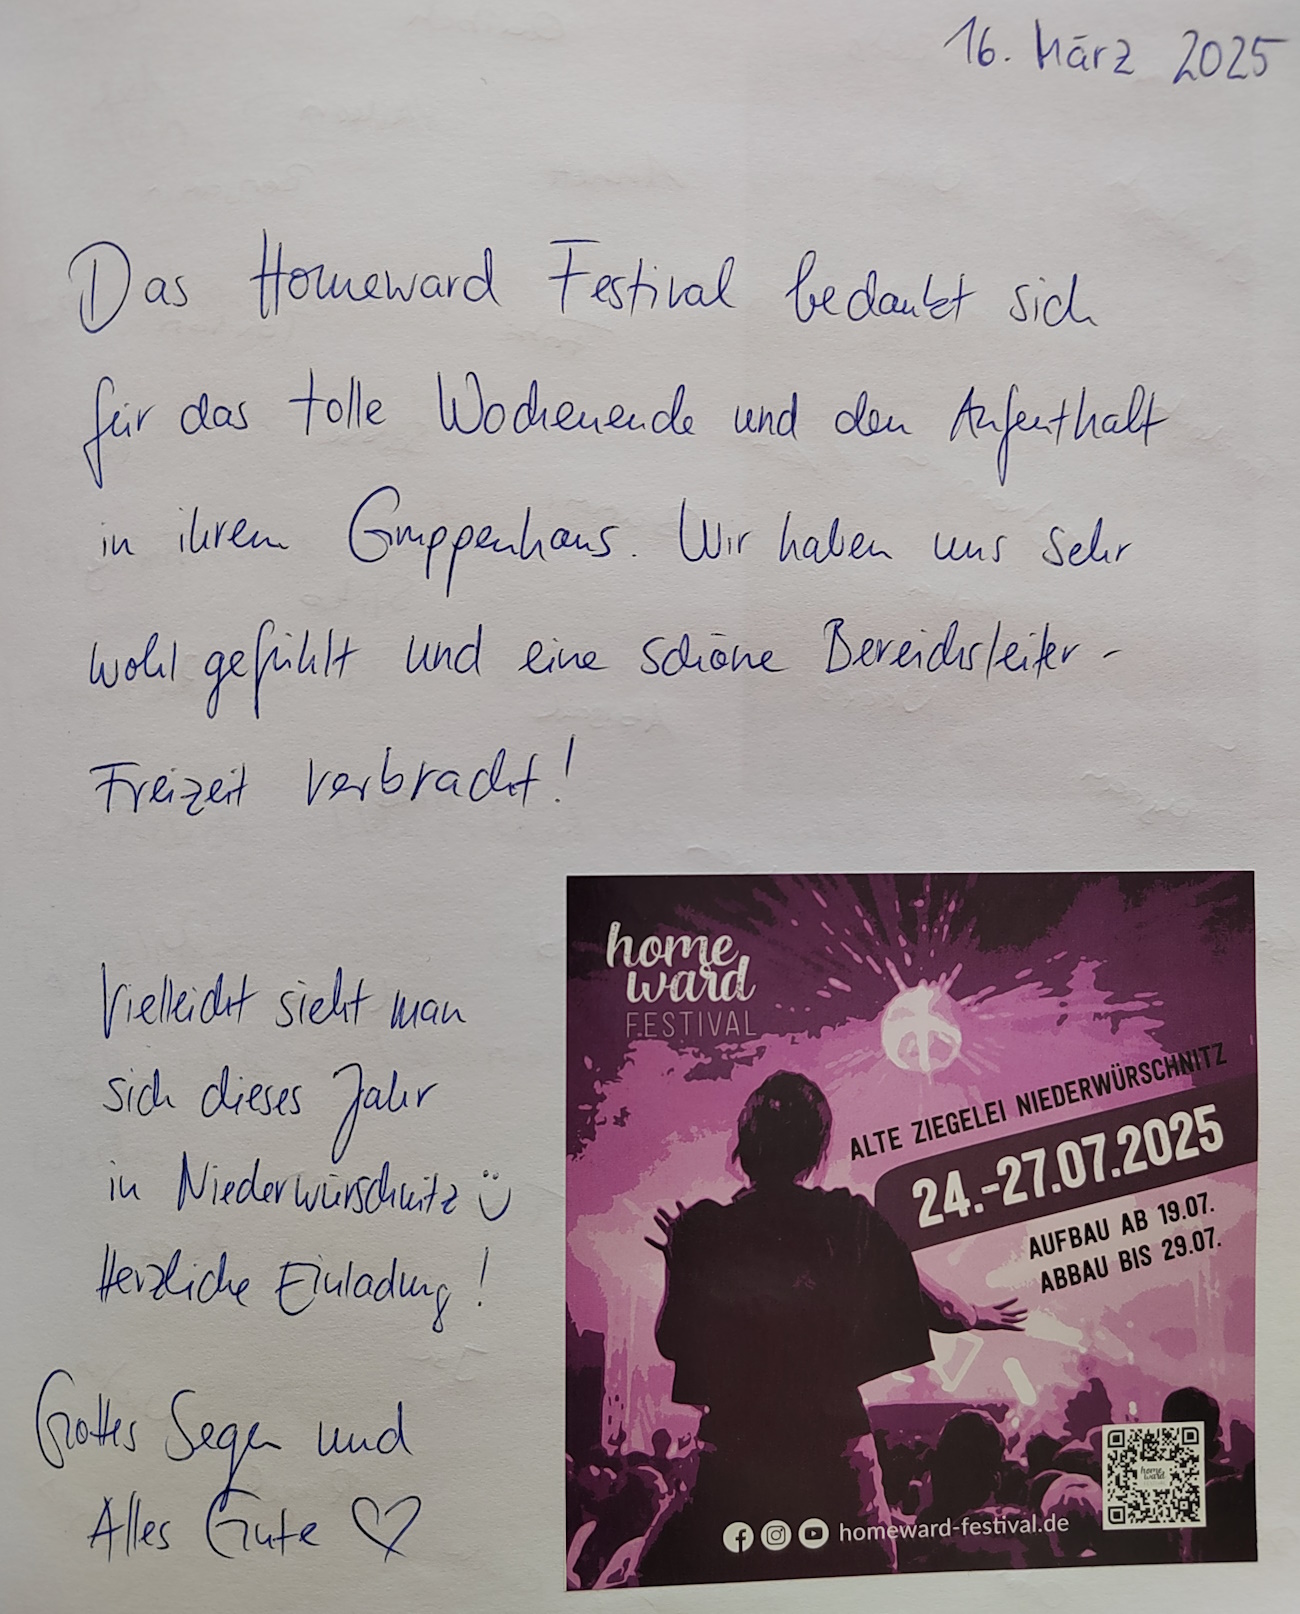 16. März 2025
Das Homeward Festival bedankt sich
für das tolle Wochenende und den Aufenthalt
in ihrem Gruppenhaus. Wir haben uns sehr
wohl gefühlt und eine schöne Bereichsleiter-
Freizeit verbracht!
Vielleicht sieht man
sich dieses Jahr
in Niederwürschnitz
Herzliche Einladung!
Gottes Segen und
Alles Gute ♡
home
ward
FESTIVAL
ALTE ZIEGELEI NIEDERWÜRSCHNITZ
24.-27.07.2025
AUFBAU AB 19.07.
ABBAU BIS 29.07.
home
ward
homeward-festival.de